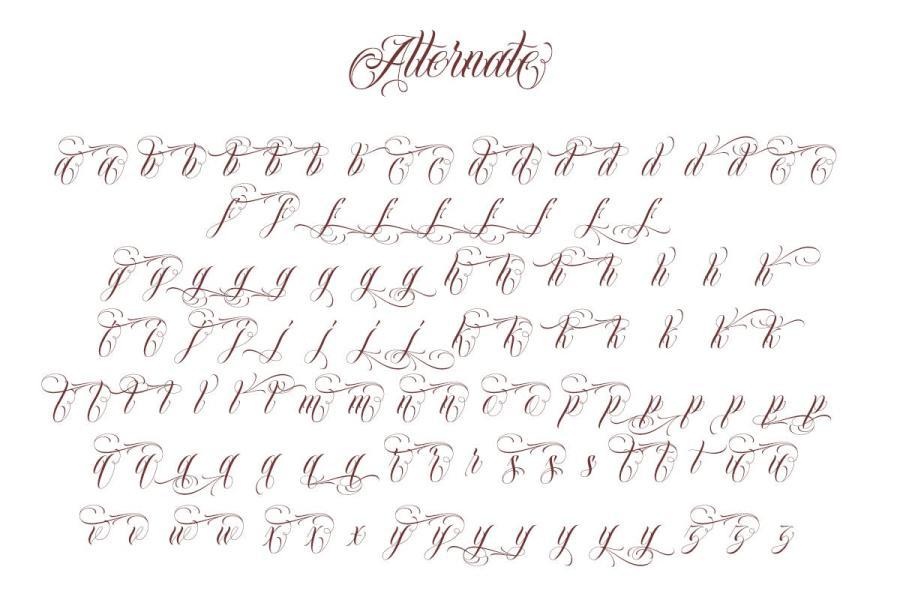 Alternate
a a b b b b b b c c d d d d d d d e e
f f f f f f f f f
g g g g g g g g h h h h h h h
i i j j j j j j k k k k k k k
l l l l l l l m m n n o o p p p p p p p
q q q q q q q r r r s s s t t t u u
v v w w x x x y y y y y y y z z z